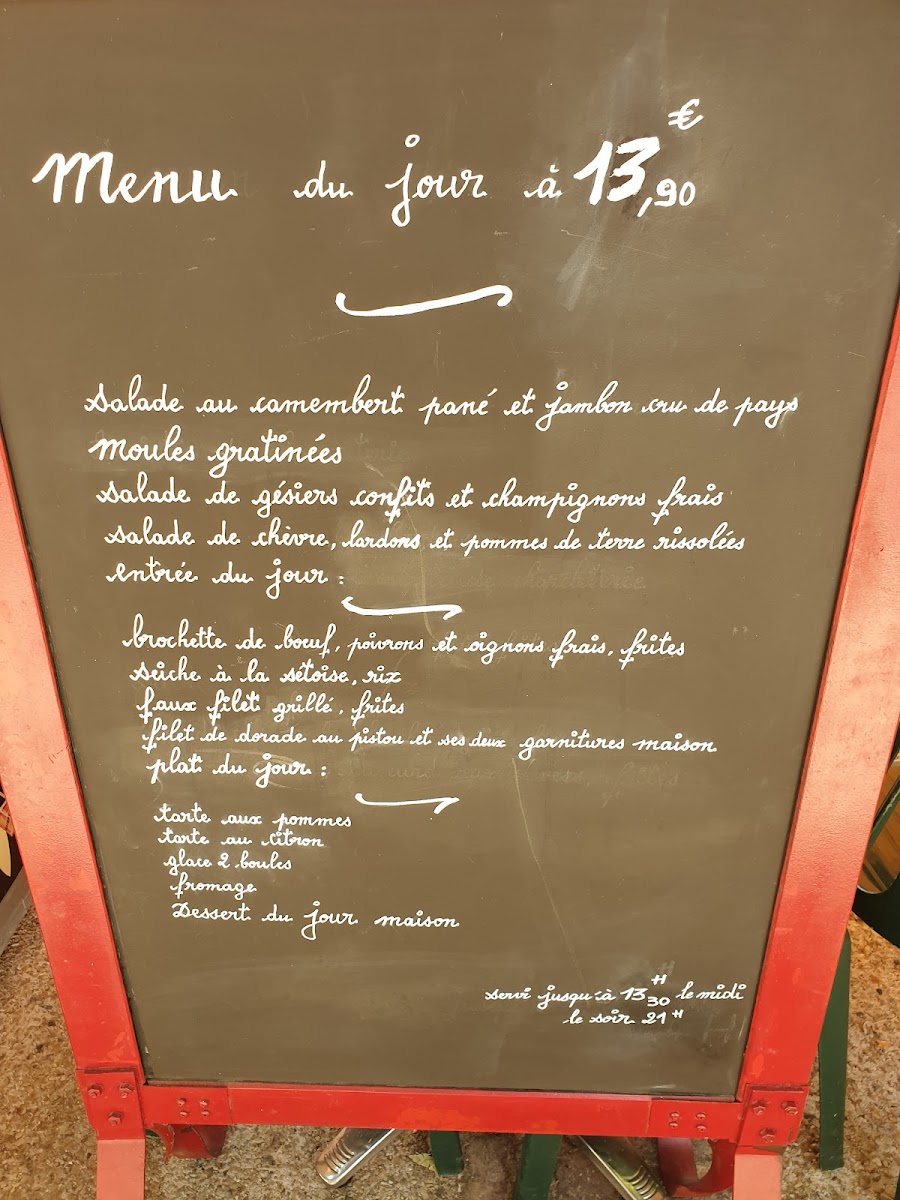 Menu du jour à 13,90 €
salade au camembert pané et jambon cru de pays
moules gratinées
salade de gésiers confits et champignons frais
salade de chèvre, lardons et pommes de terre rissolées
entrée du jour :
brochette de boeuf, poivrons et oignons frais, frites
seiche à la sétoise, riz
faux filet grillé, frites
filet de dorade au pistou et ses deux garnitures maison
plat du jour :
tarte aux pommes
tarte au citron
glace 2 boules
fromage
Dessert du jour maison
servi jusqu'à 13H30 le midi
le soir 21H